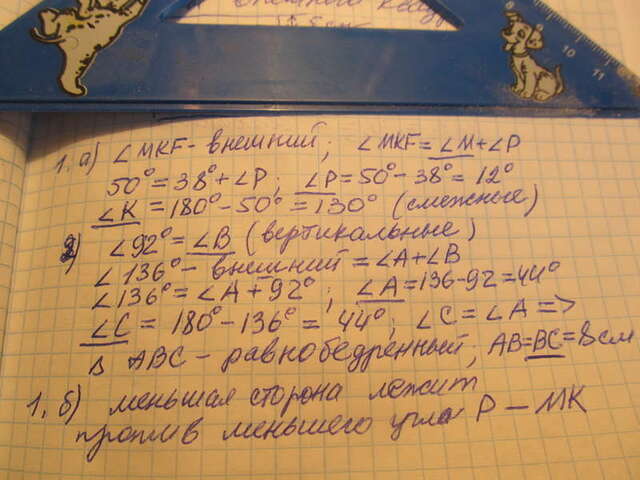 внешнего
8 9 10 11
1. а) ∠MKF - внешний; ∠MKF = ∠M + ∠P
50° = 38° + ∠P; ∠P = 50° - 38° = 12°
∠K = 180° - 50° = 130° (смежные)
2) ∠92° = ∠B (вертикальные)
∠136° - внешний = ∠A + ∠B
∠136° = ∠A + 92°; ∠A = 136 - 92 = 44°
∠C = 180° - 136° = 44°; ∠C = ∠A =>
△ ABC - равнобедренный; AB = BC = 8 см
1. б) меньшая сторона лежит
против меньшего угла P — MK